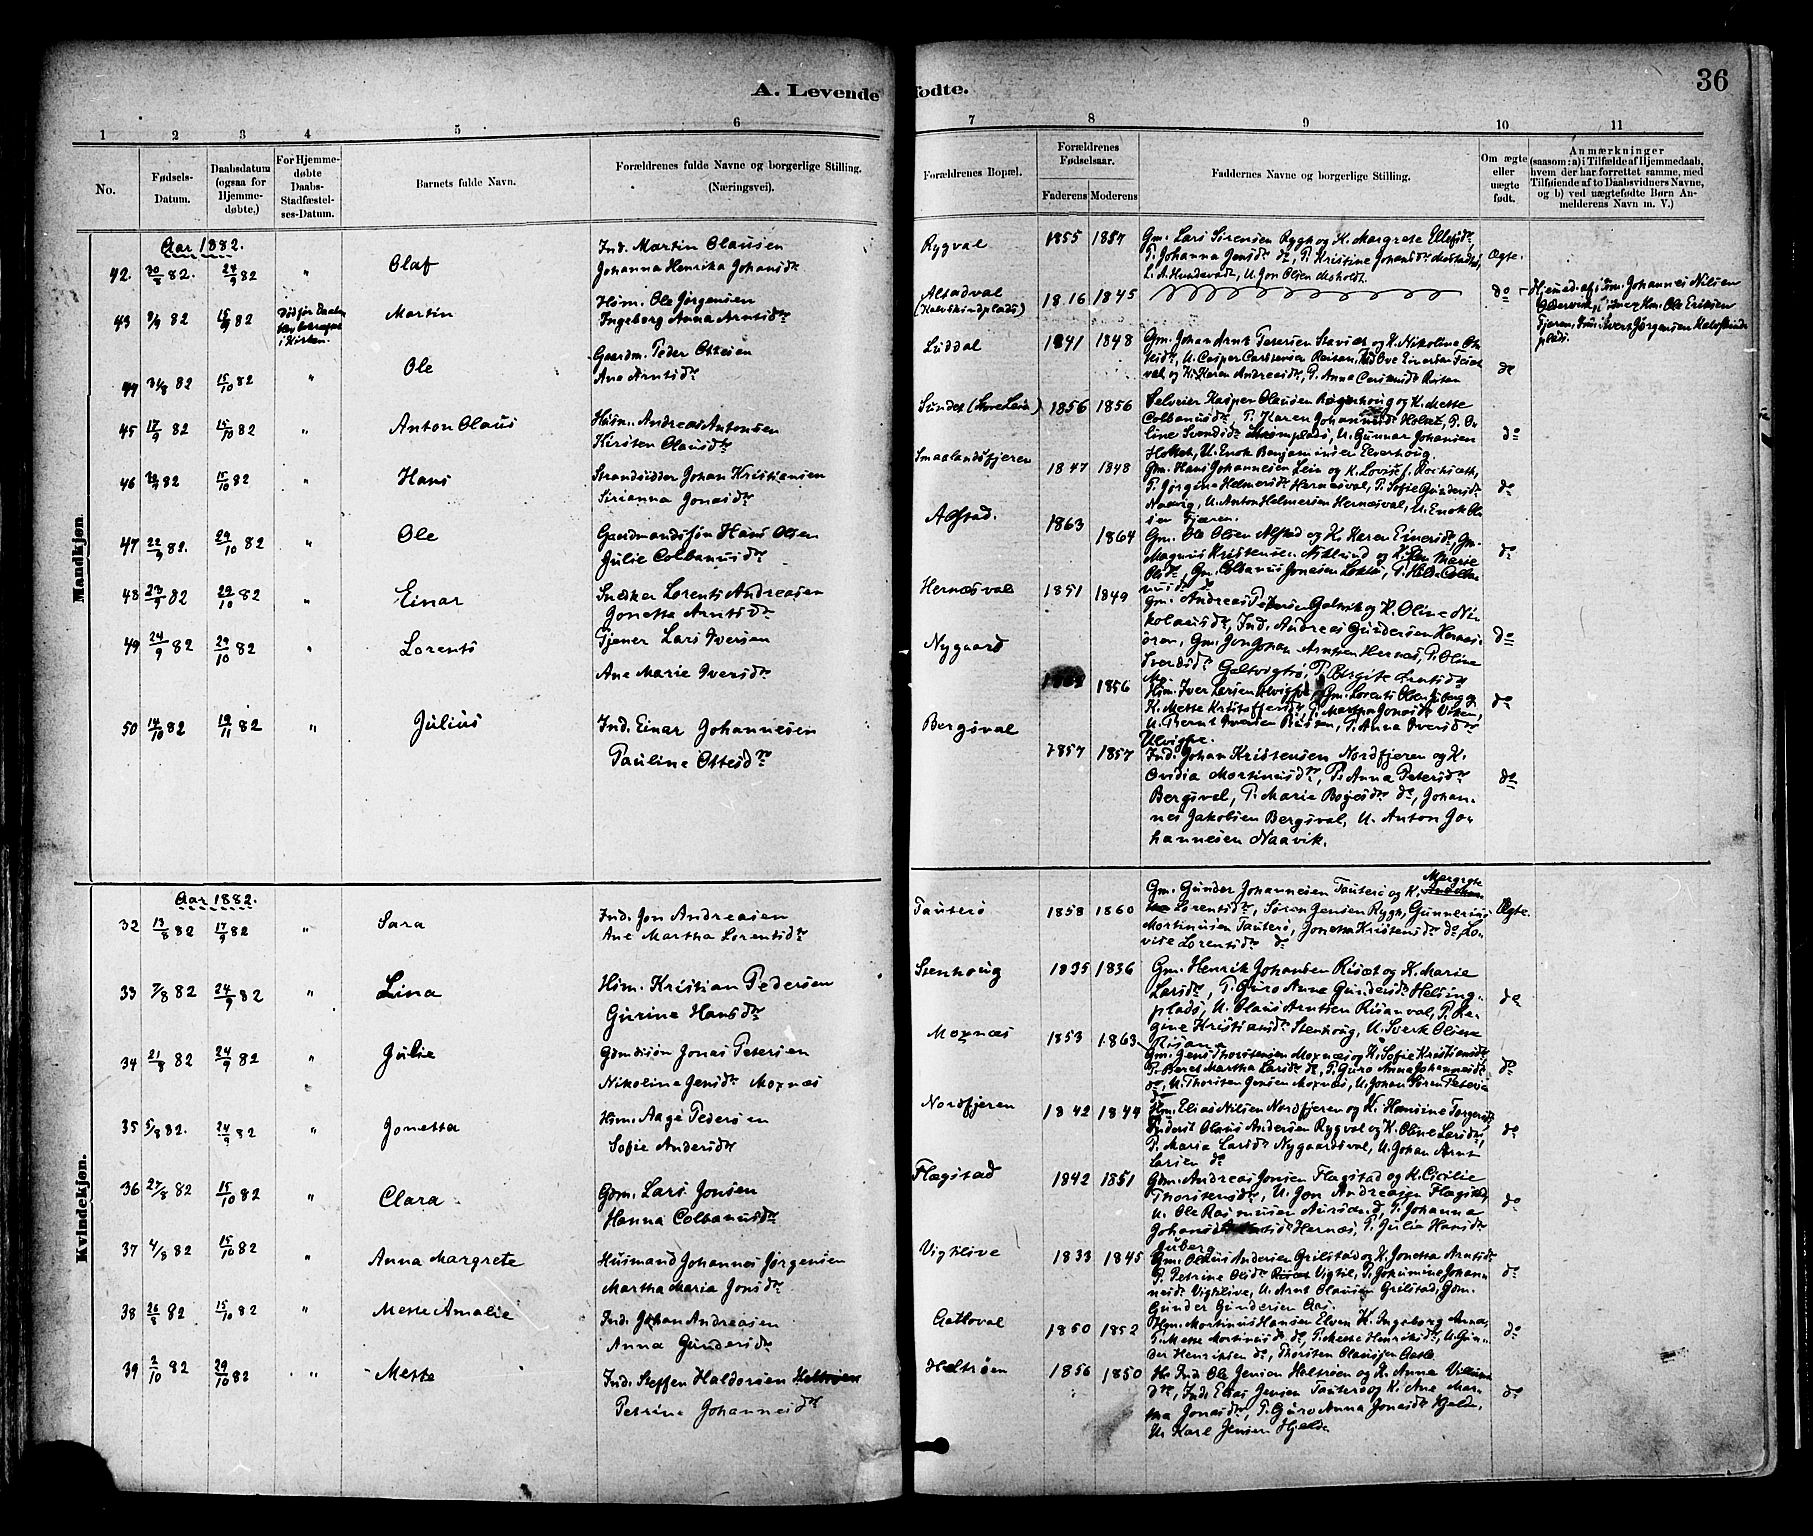 A. Levende Fødte.
36
1 2 3 4 5 6 7 8 9 10 11
No.
Fødsels-Datum.
Daabsdatum (ogsaa for Hjemme-døbte.)
For Hjemme-døbte Daabs-Stadfæstel-ses-Datum.
Barnets fulde Navn.
Forældrenes fulde Navne og borgerlige Stilling. (Næringsvei).
Forældrenes Bopæl.
Forældrenes Fødselsaar.
Faderens Moderens
Faddernes Navne og borgerlige Stilling.
Om ægte eller uægte født.
Anmærkninger
(saasom: a) i Tilfælde af Hjemmedaab, hvem der har forrettet samme, med Tilføiende af to Daabsvidners Navne, og b) ved uægtefødte Børn An-melderens Navn m. V.)
Mandkjøn.
Aar 1882.
42. 30/8 82. 24/9 82 " Olaf
Ind. Martin Olausen
Johanna Henrika Johansdtr
Rygval 1855 1857
Gm. Lars Sørensen Rygh og K. Margrete Ellefsdtr,
P. Johanna Jensdtr do, P. Kristine Johansdtr
U. Jon Olsen
Ægte.
43 9/9 82 15/9 82
Martin
Hsm. Ole Jørgensen
Ingeborg Anna Arntsdtr
Alstadval
1816 1845
do
Hjemmed. af Gm. Johannes Nilsen
Ole Eriksen
Fjæren, Sivert Jørgensen
plads.
44 31/8 82 15/10 82 " Ole
Gaardm. Peder Ottesen
Ane Arntsdtr
Liddal 1841 1848
Gm. Johan Arnt Petersen og K. Nikoline
U. Casper Carstensen Reitan, Ove Einersen
og K. Karen Andreasdtr, P. Anna Carstensdtr Reitan
do
45 17/9 82 15/10 82 " Anton Olaus
Husm. Andreas Antonsen
Kirsten Olausdtr
Sundet (Nore Lein) 1856 1856
Selveier Kasper Olausen og K. Mette
Colbanusdtr, P. Karen Johannesdtr Holset, P. O-
line Svendsdtr, U. Gunnar Johansen
Holset, U. Enok Benjaminsen Elverhøug.
do
46 29/9 82 15/10 82 " Hans
Strandsidder Johan Kristiansen
Sirianna Jonasdtr
Smaalandsfjæren 1847 1848
Gm. Hans Johannesen Lein og K. Lovise
P. Jørgine Helmersdtr Hernæsval, P. Sofie Gundersdtr
Naavig, U. Anton Helmersen Hernæsval, U. Enok Ol-
sen Fjæren.
do
47 22/9 82. 29/10 82 " Ole
Gaardmandssøn Hans Olsen
Julie Colbanusdtr
Alstad. 1863 1864
Gm. Ole Olsen Alstad og K. Karen Einersdtr, Gm.
Magnus Kristensen og K. Marie
Olsdtr, Gm. Colbanus Jonesen
do
48 23/9 82 29/10 82 " Einar
Snedker Lorents Andreasen
Jonetta Arntsdtr
Hernæsval 1851 1849
Gm. Andreas Petersen Galtvik og K. Oline Ni-
kolausdtr, Ind. Andreas Gundersen Hernæs-
øren, Gm. Jon Johan Arntsen Hernæs, P. Oline
Sverdsdtr Galtvigtrø, P. Birgite Arntsdtr
do
49 24/9 82 29/10 82 " Lorents
Tjener Lars Iversen
Ane Marie Iversdtr
Nygaard 1856
Hsm. Iver Larsen, Gm. Lorents Olsen
K. Mette Kristoffersdtr, P. Martha Jonasdtr
U. Bernt Iversen, P. Anna Iversdtr
Ulvighe.
do
50 14/10 82 19/11 82 " Julius
Ind. Einar Johannesen
Pauline Ottesdtr
Bergsval 1857 1857
Ind. Johan Kristensen Nordfjæren og K.
Ovidia Mortinusdtr, P. Anna Petersdtr
Bergsval, P. Marie Boyesdtr do, Johan-
nes Jakobsen Bergsval, U. Anton Jo-
hannesen Naavik.
do
Kvindekjøn.
Aar 1882.
32 13/8 82 17/9 82 " Sara
Ind. Jon Andreasen
Ane Martha Lorentsdtr
Tauterø 1858 1860
Gm. Gunder Johannesen Tauterø og K. Margrete
Lorentsdtr, Søren Jensen Rygh, Gunnerius
Mortinusen Tauterø, Jonetta Kristensdtr do, Lo-
vise Lorentsdtr do
Ægte.
33 7/8 82 24/9 82 " Lina
Hsm. Kristian Pedersen
Gurine Hansdtr
Stenhoug 1835 1836
Gm. Henrik Johansen Risæt og K. Marie
Larsdtr, P. Guro Anna Gundersdtr Helsing-
plads, U. Olaus Arntsen Risanval, P. Re-
gine Kristiansdtr Stenhoug, U. Sverk Olsen
Risan.
do
34 21/8 82 24/9 82 " Julie
Gdmdssøn Jonas Petersen
Nikoline Jensdtr Moxnæs
Moxnæs 1853 1863
Gm. Jens Thorstensen Moxnæs og K. Sofie Kristiansdtr,
P. Beret Martha Larsdtr do, P. Guro Anna Johannesdtr
do, U. Thorsten Jonsen Moxnæs, U. Johan Søren Petersen
do
35 5/8 82. 24/9 82 " Jonetta
Hsm. Aage Pedersen
Sofie Andersdtr
Nordfjæren 1842 1844
Hsm. Elias Nilsen Nordfjæren og K. Hansine Torgersdtr
Olaus Andersen Rygval og K. Oline Larsdtr,
P. Maria Larsdtr Nygaardsval, U. Johan Arnt
Larsen do
do
36 27/8 82 15/10 82 " Clara
Gdm. Lars Jonsen
Hanna Colbanusdtr
Flægstad 1842 1851
Gdm. Andreas Jonsen Flægstad og K. Cicilie
Thorstensdtr, U. Jon Andreasen Flægstad,
U. Ole Rasmusen Aursand, P. Johanna
Hernæs, P. Julia Hansdtr
do
37 4/8 82 15/10 82 " Anna Margrete
Husmand Johannes Jørgensen
Martha Maria Jonsdtr
Vigtilive 1833 1845
Gm. Olaus Andersen Grilstad og K. Jonetta Arntsdtr
P. Petrine Olsdtr Vigtil, P. Johan-
nesdtr Vigtilive, U. Arnt Olausen Grilstad, Gdm.
Gunder Gundersen Aas.
do
38 26/8 82 15/10 82 " Mette Amalie
Ind. Johan Andreasen
Anna Gundersdtr
1850 1852
Hsm. Mortinus Hansen Elven K. Ingeborg Anna,
P. Mette Mortinusdtr do, P. Mette Henriksdtr, U. Gun-
der Henriksen do, Thorsten Olausen
do
39 2/10 82 29/10 82 " Mette
Ind. Steffen Haldorsen Heltrøen
Petrine Johannesdtr
Heltrøen 1856 1850
Ind. Ole Jensen Heltrøen og K. Anna
Ind. Elias Jensen Tauterø og K. Ane Mar-
tha Jonasdtr, P. Guro Anna Jonasdtr Hjelde,
U. Karl Jensen Hjelde
do